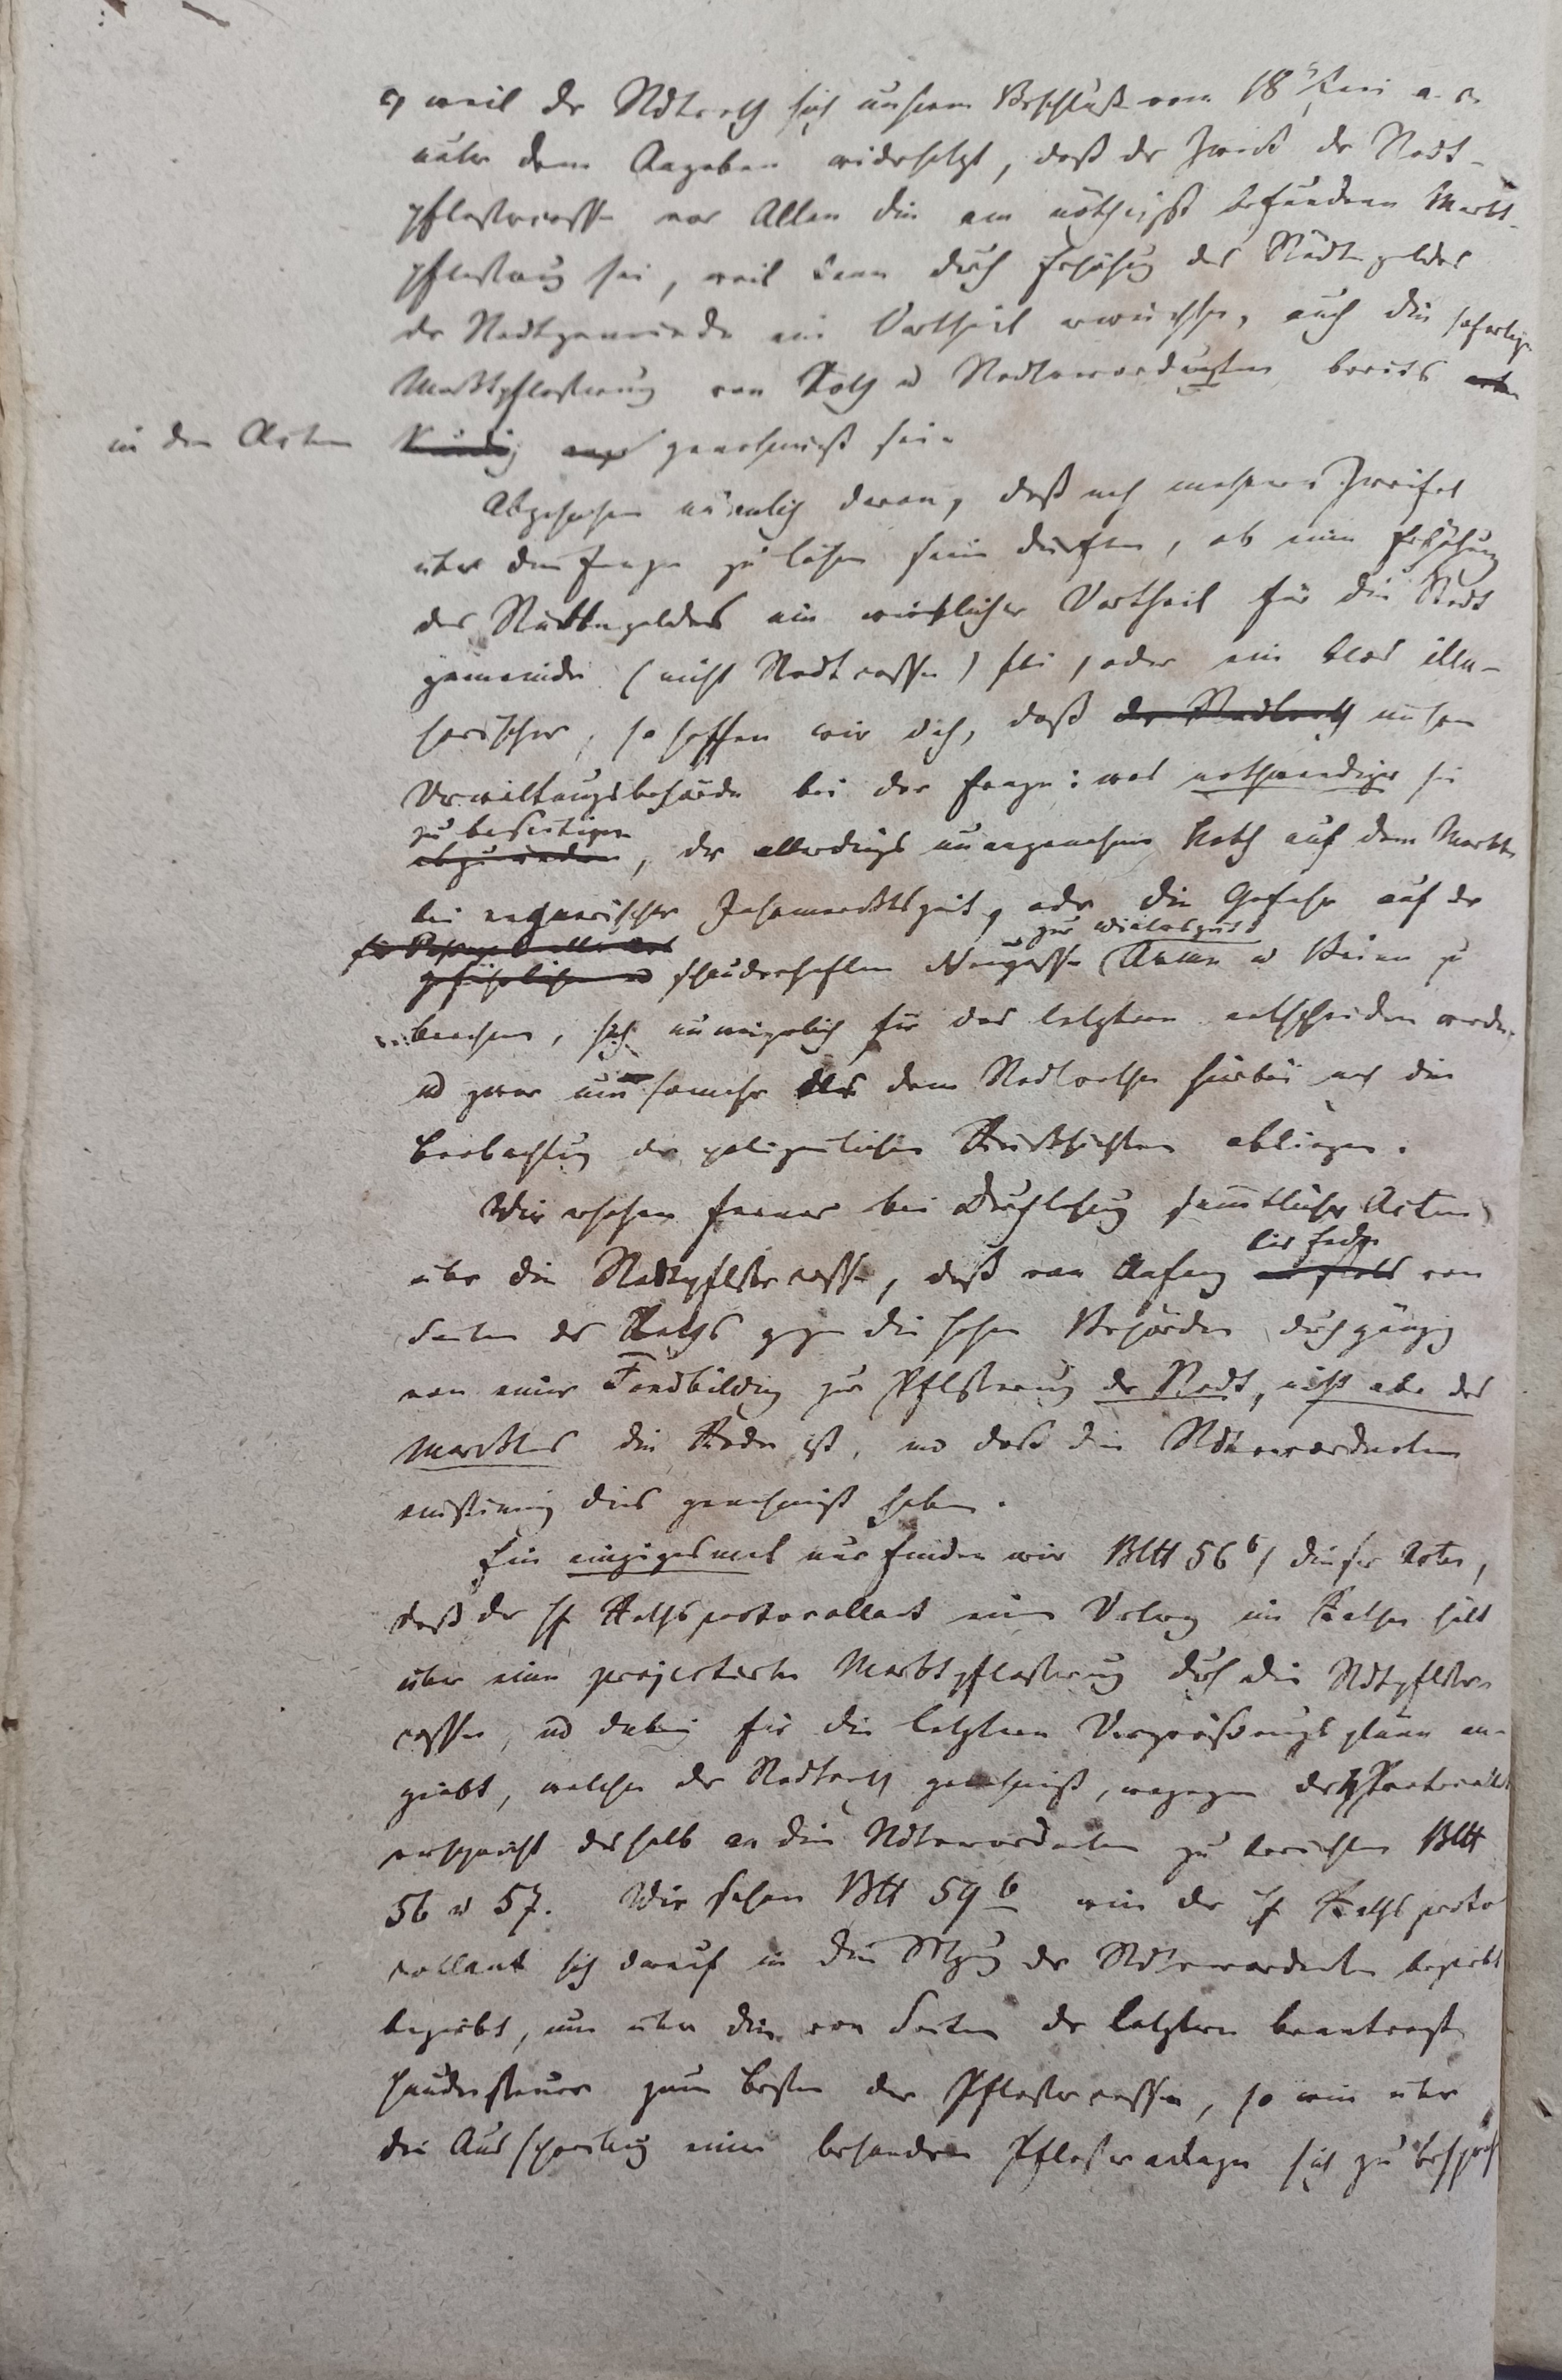 c) weil der Stdtrath sich unserm Beschluß vom 18 Juni a. c.
unter dem Angeben widersetzt, daß der Zweck der Stadt-
pflastercasse vor Allen die am nöthigst befundene Markt-
pflasterung sei, weil dann durch Erhöhung des Stättegeldes
der Stadtgemeinde ein Vortheil erwüchse, auch die sofortige
Marktpflasterung von Rath u Stadtverordneten bereits
in den Acten genehmigt sei.
Abgesehen nämlich davon, daß noch mehrere Zweifel
über die Frage zu lösen sein dürften, ob eine Erhöhung
des Stättegeldes ein wirklicher Vortheil für die Stadt
gemeinde (nicht Stadtcasse) sei, oder ein blos illu-
sorischer, so hoffen wir doch, daß der Stadtrath unsere
Verwaltungsbehörde bei der Frage: was nothwendiger sei
zu beseitigen
abzuwenden, der allerdings unangenehme Koth auf dem Markte
bei regnerischer Jahrmarktszeit, oder die Gefahr auf der
zur Winterszeit
schauderhaften Neugasse Arme u Beine zu
brechen, sich unweigerlich für das letztere entscheiden werde,
und zwar um somehr als dem Stadtrathe hierbei noch die
Beobachtung der polizeilichen Rücksichten obliegen.
Wir ersehen ferner bei Durchlesung sämmtlicher Acten
bis Ende
über die Stadtpflstercasse, daß von Anfang von
Seiten des Raths gegen die hohen Behörden durchgängig
von einer Fondbildung zur Pflsterung der Stadt, nicht aber des
Marktes die Rede ist, und daß die Stdtverordneten
einstimmig dies genehmigt haben.
Ein einzigesmal nur finden wir Bltt 56 b/ dieser Acten,
daß der H Rathsprotocollant einen Vortrag im Rathe hält
über eine projectirte Marktpflasterung durch die Stdtpflster
casse, und dabei für die letztere Vergrößerungspläne an-
giebt, welche der Stadtrath genehmigt, wogegen der H Protocoll
verspricht deshalb an die Stdtverordneten zu berichten Bltt
56 u 57. Wir sehen Bltt 59 b wie der H Rathsproto
collant sich darauf in die Sitzung der Stdtverordneten begiebt
begiebt, um über die von Seiten der letztern beantragte
Hundesteuer zum Besten der Pflastercasse, so wie über
die Ausschreibung einer besondern Pflasteranlage sich zu besprech